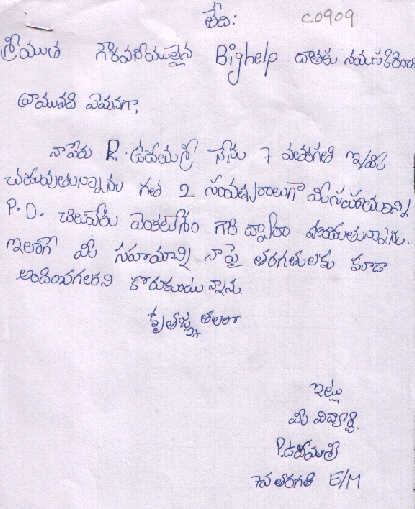 తేది: C0909
శ్రీయుత గౌరవనీయులైన Bighelp దాతకు నమస్కరించి
వ్రాయునది ఏమనగా,
నాపేరు R. ఉదయశ్రీ నేను 7 వతరగతి
చదువుతున్నాను గత 2 సంవత్సరాలుగా మీ సహాయాన్ని
P.D. వెంకటేశం గారి ద్వారా పొందుతున్నాను.
ఇలాగే మీ సహాయాన్ని నాపై తరగతులకు కూడా
అందించగలరని కోరుకుంటున్నాను
కృతజ్ఞతలతో
ఇట్లు
మీ విద్యార్థి
P.ఉదయశ్రీ
7వ తరగతి E/M